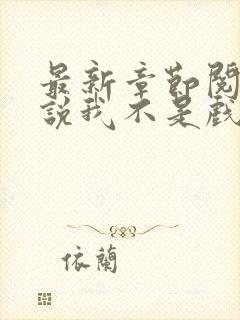 最新章節閱
說我不是戲
依蘭